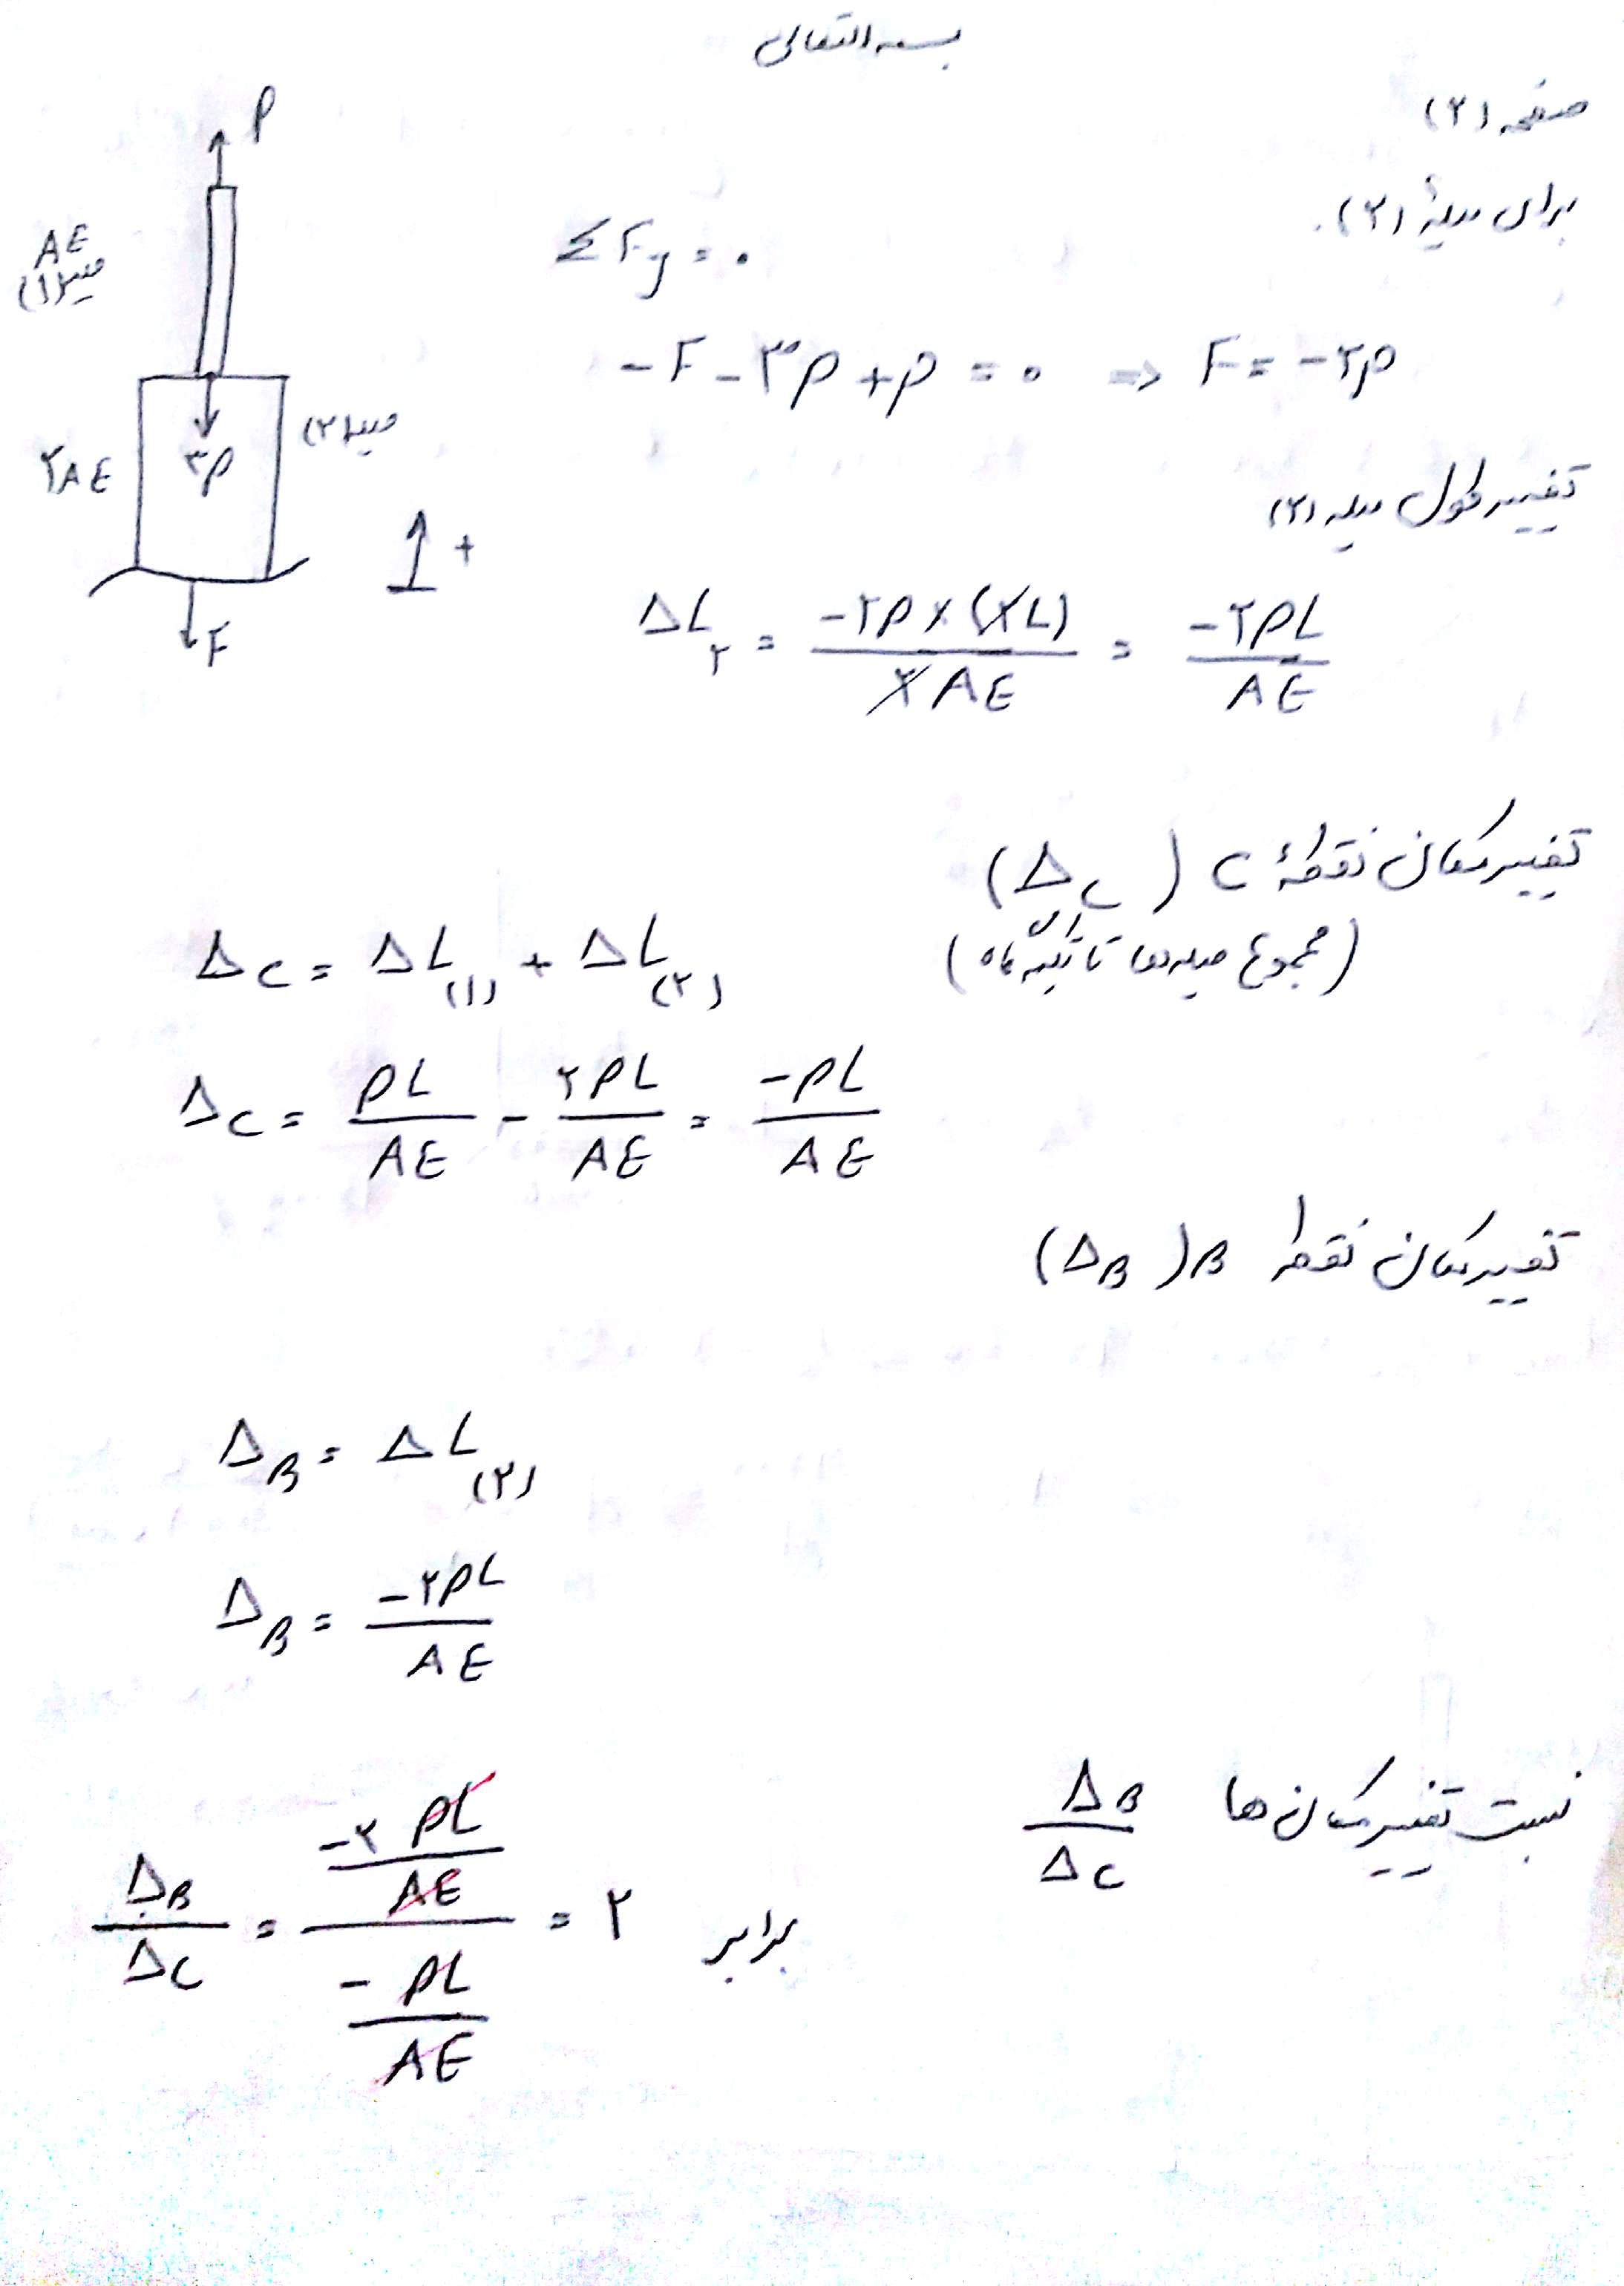 بسمه التعالی
صفحه (۲)
برای میلهٔ (۲).
P
AE
میله (۱)
ΣFy = ۰
-F - ۳P + P = ۰ ⇒ F = -۲P
میله (۲)
۲AE
۳P
+
F
تغییر طول میله (۲)
ΔL۲ = -۲P × (۲L) / ۲AE = -۲PL / AE
تغییر مکان نقطهٔ C (ΔC)
(مجموع میله‌ها تا تکیه‌گاه)
ΔC = ΔL(۱) + ΔL(۲)
ΔC = PL / AE - ۲PL / AE = -PL / AE
تغییر مکان نقطه B (ΔB)
ΔB = ΔL(۲)
ΔB = -۲PL / AE
نسبت تغییر مکان‌ها ΔB / ΔC
ΔB / ΔC = (-۲ PL / AE) / (- PL / AE) = ۲ برابر